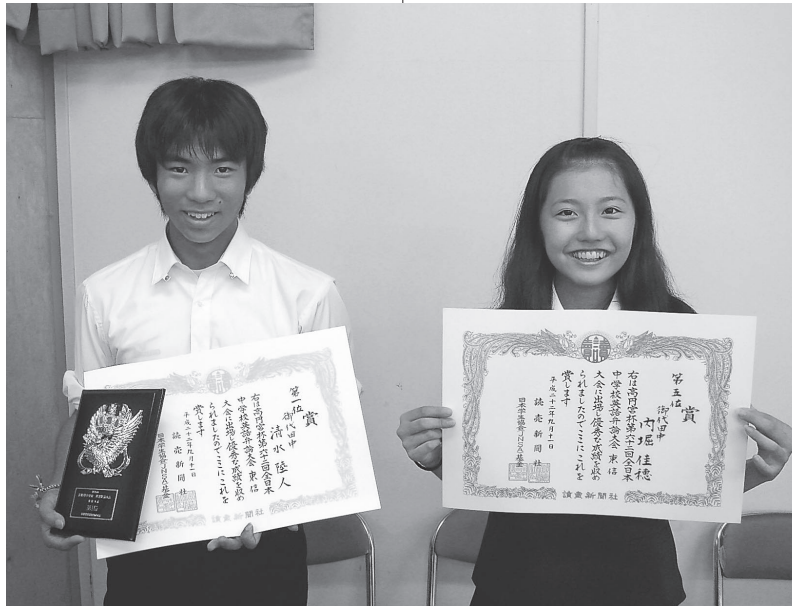 賞
第一位
御代田中
清水陸人
右は高円宮杯第六十二回全日本
中学校英語弁論大会東信
大会に出場し優秀な成績を収め
られましたのでここにこれを
賞します
平成二十二年九月十一日
読売新聞社
日本学生協会(JNSA)基金
讀賣新聞社
賞
第五位
御代田中
内堀佳穂
右は高円宮杯第六十二回全日本
中学校英語弁論大会東信
大会に出場し優秀な成績を収め
られましたのでここにこれを
賞します
平成二十二年九月十一日
読売新聞社
日本学生協会(JNSA)基金
讀賣新聞社